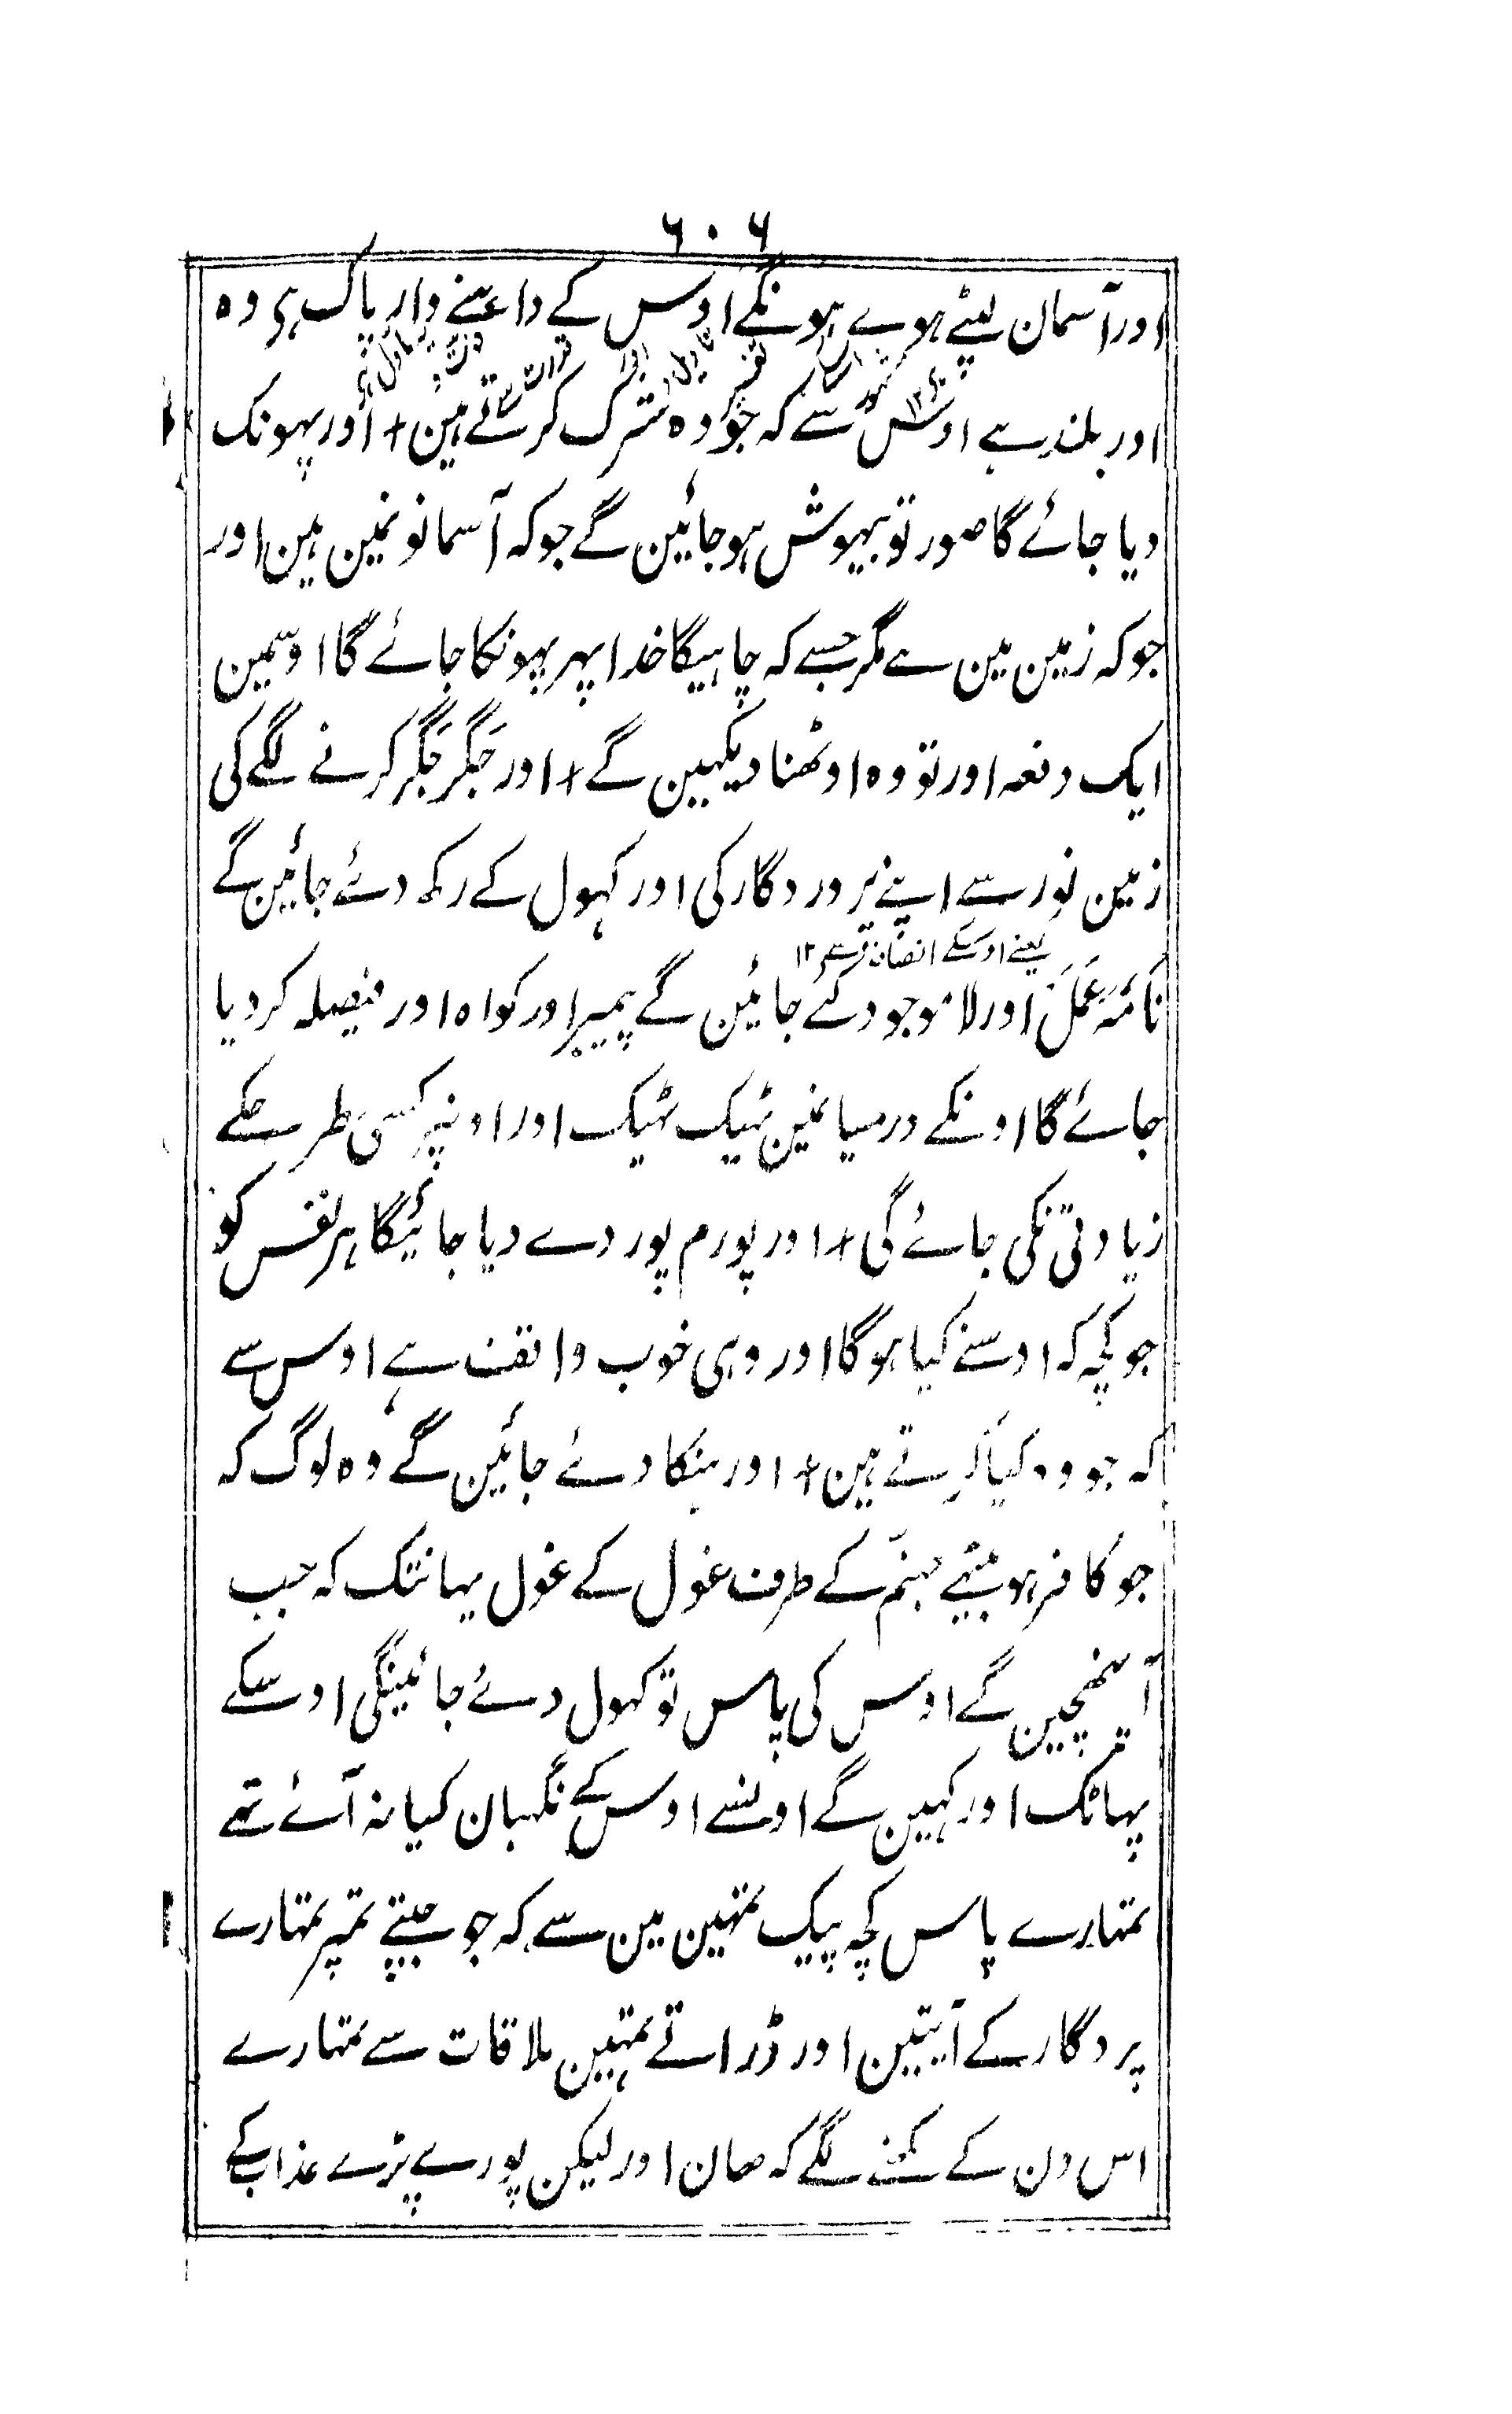 ۶۰۶
اور آسمان لپٹے ہوے ہونگے اوس کے داہنے وار پاک ہی وہ
اور بلند ہے اوس سے کہ جو وہ شرک کرتے ہین + اور پہونک
دیا جائے گا صور تو بیہوش ہو جائین گے جو کہ آسمانونمین ہین اور
جو کہ زمین مین ہے مگر جسے کہ چاہیگا خدا پہر پہونکا جائے گا اوسمین
ایک دفعہ اور تو وہ اوٹھنا دیکہین گے + اور جگر جگر کرنے لگے کی
زمین نور سے اپنے پروردگار کی اور کہول کے رکہ دئے جائین گے
یعنے اوسکے انصاف سے ۱۲
نامۂ عمل اور لا موجود کئے جائین گے پیمبر اور گواہ اور فیصلہ کر دیا
جائے گا اونکے درمیانمین ٹہیک ٹہیک اور اونپر کسی طرحکے
زیادتی نکی جائے گی + اور پورم پور دے دیا جائیگا ہر نفس کو
جو کچہ کہ اوسنے کیا ہوگا اور وہی خوب واقف ہے اوس سے
کہ جو وہ کیا کرتے ہین + اور ہنکا دئے جائین گے وہ لوگ کہ
جو کافر ہو بیٹہے جہنّم کے طرف غول کے غول یہانتک کہ جب
آ پہنچین گے اوس کی پاس تو کہول دئے جائینگی اوسکے
پہاٹک اور کہین گے اونسے اوس کے نگہبان کیا نہ آئے تہے
تمہارے پاس کچہ پیک تمہین مین سے کہ جو جپتے تمپر تمہارے
پردگار کے آیتین اور ڈراتے تمہین ملاقات سے تمہارے
اس دن کے کہنے لگے کہ ہان اور لیکن پورے پڑے عذاب کے